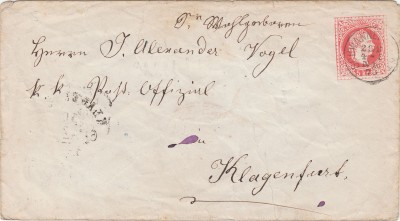 Sr Wohlgeboren
Herrn J. Alexander Vogel
k. k. Post. Offizial
in
Klagenfurt.